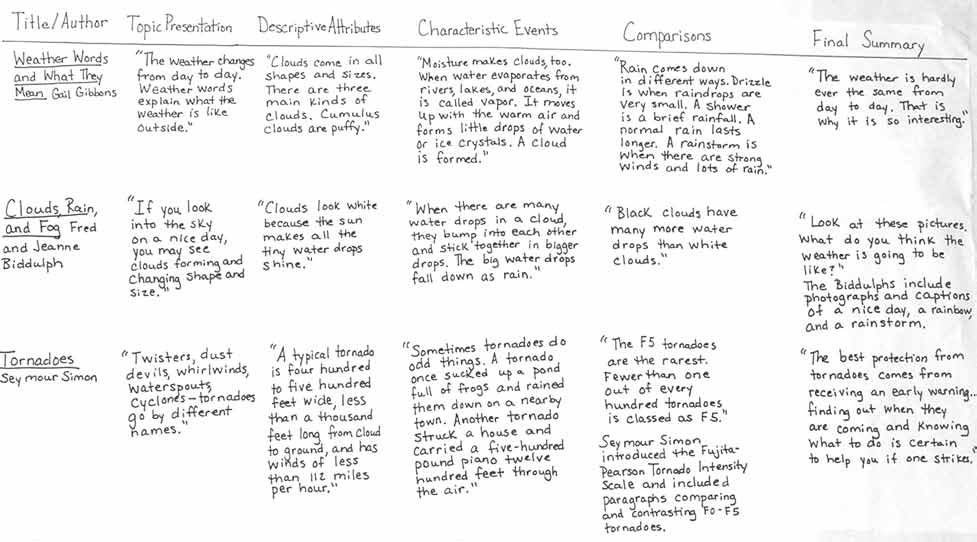 Title/Author
Topic Presentation
Descriptive Attributes
Characteristic Events
Comparisons
Final Summary
Weather Words
and What They
Mean Gail Gibbons
"The weather changes
from day to day.
Weather words
explain what the
weather is like
outside."
"Clouds come in all
shapes and sizes.
There are three
main kinds of
clouds. Cumulus
clouds are puffy."
"Moisture makes clouds, too.
When water evaporates from
rivers, lakes, and oceans, it
is called vapor. It moves
up with the warm air and
forms little drops of water
or ice crystals. A cloud
is formed."
"Rain comes down
in different ways. Drizzle
is when raindrops are
very small. A shower
is a brief rainfall. A
normal rain lasts
longer. A rainstorm is
when there are strong
winds and lots of rain."
"The weather is hardly
ever the same from
day to day. That is
why it is so interesting."
Clouds, Rain,
and Fog Fred
and Jeanne
Biddulph
"If you look
into the sky
on a nice day,
you may see
clouds forming and
changing shape and
size."
"Clouds look white
because the sun
makes all the
tiny water drops
shine."
"When there are many
water drops in a cloud,
they bump into each other
and stick together in bigger
drops. The big water drops
fall down as rain."
"Black clouds have
many more water
drops than white
clouds."
"Look at these pictures.
What do you think the
weather is going to be
like?"
The Biddulphs include
photographs and captions
of a nice day, a rainbow,
and a rainstorm.
Tornadoes
Seymour Simon
"Twisters, dust
devils, whirlwinds,
waterspouts,
cyclones—tornadoes
go by different
names."
"A typical tornado
is four hundred
to five hundred
feet wide, less
than a thousand
feet long from cloud
to ground, and has
winds of less
than 112 miles
per hour."
"Sometimes tornadoes do
odd things. A tornado
once sucked up a pond
full of frogs and rained
them down on a nearby
town. Another tornado
struck a house and
carried a five-hundred
pound piano twelve
hundred feet through
the air."
"The F5 tornadoes
are the rarest.
Fewer than one
out of every
hundred tornadoes
is classed as F5."
Seymour Simon
introduced the Fujita-
Pearson Tornado Intensity
Scale and included
paragraphs comparing
and contrasting F0-F5
tornadoes.
"The best protection from
tornadoes comes from
receiving an early warning...
finding out when they
are coming and knowing
what to do is certain
to help you if one strikes."